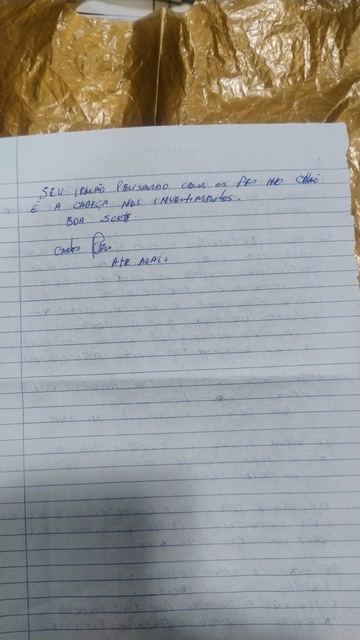 SEU IRMÃO PENSANDO COM OS PES NO CHÃO
É A CABEÇA NOS INVESTIMENTOS.
BOA SORTE.
CARLOS
ATE MAIS